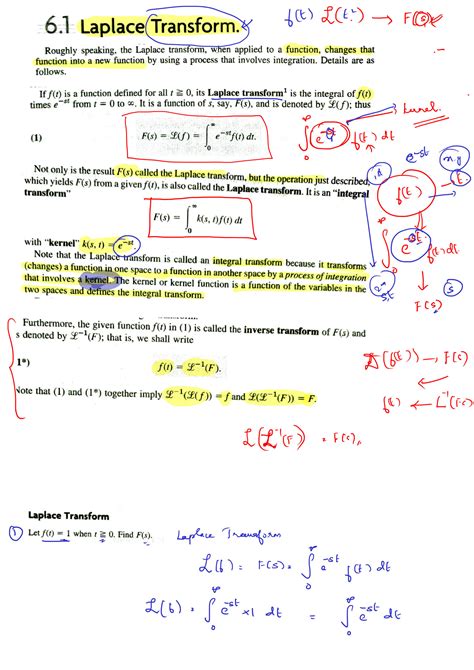 6.1 Laplace Transform.
f(t) L(t²) → F(s)
Roughly speaking, the Laplace transform, when applied to a function, changes that
function into a new function by using a process that involves integration. Details are as
follows.
If f(t) is a function defined for all t ≧ 0, its Laplace transform¹ is the integral of f(t)
times e^-st from t = 0 to ∞. It is a function of s, say, F(s), and is denoted by ℒ(f); thus
(1) F(s) = ℒ(f) = ∫₀^∞ e^-st f(t) dt.
kernel.
f(t) dt
e^-st
Not only is the result F(s) called the Laplace transform, but the operation just described,
which yields F(s) from a given f(t), is also called the Laplace transform. It is an "integral
transform"
F(s) = ∫₀^∞ k(s, t) f(t) dt
f(t)
with "kernel" k(s, t) = e^-st.
Note that the Laplace transform is called an integral transform because it transforms
(changes) a function in one space to a function in another space by a process of integration
that involves a kernel. The kernel or kernel function is a function of the variables in the
two spaces and defines the integral transform.
f(t) dt
F(s)
Furthermore, the given function f(t) in (1) is called the inverse transform of F(s) and
s denoted by ℒ⁻¹(F); that is, we shall write
1*) f(t) = ℒ⁻¹(F).
Note that (1) and (1*) together imply ℒ⁻¹(ℒ(f)) = f and ℒ(ℒ⁻¹(F)) = F.
L(f(t)) → F(s)
←
f(t) ← L⁻¹(F(s))
L(L⁻¹(F)) = F(s)
Laplace Transform
① Let f(t) = 1 when t ≧ 0. Find F(s).
Laplace Transform
L(f) = F(s) = ∫₀^∞ e^-st f(t) dt
L(f) = ∫₀^∞ e^-st ×1 dt = ∫₀^∞ e^-st dt